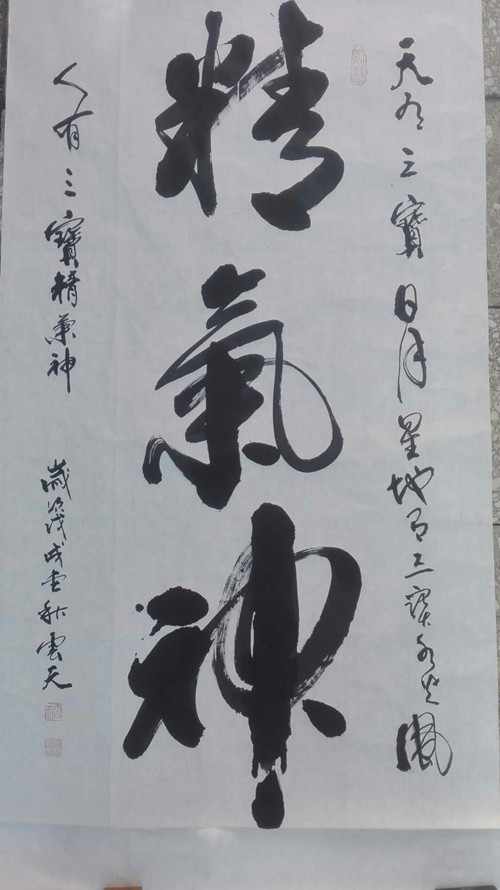 天有三寶日月星地有三寶水火風
精氣神
人有三寶精氣神
歲次戊戌立秋雲天